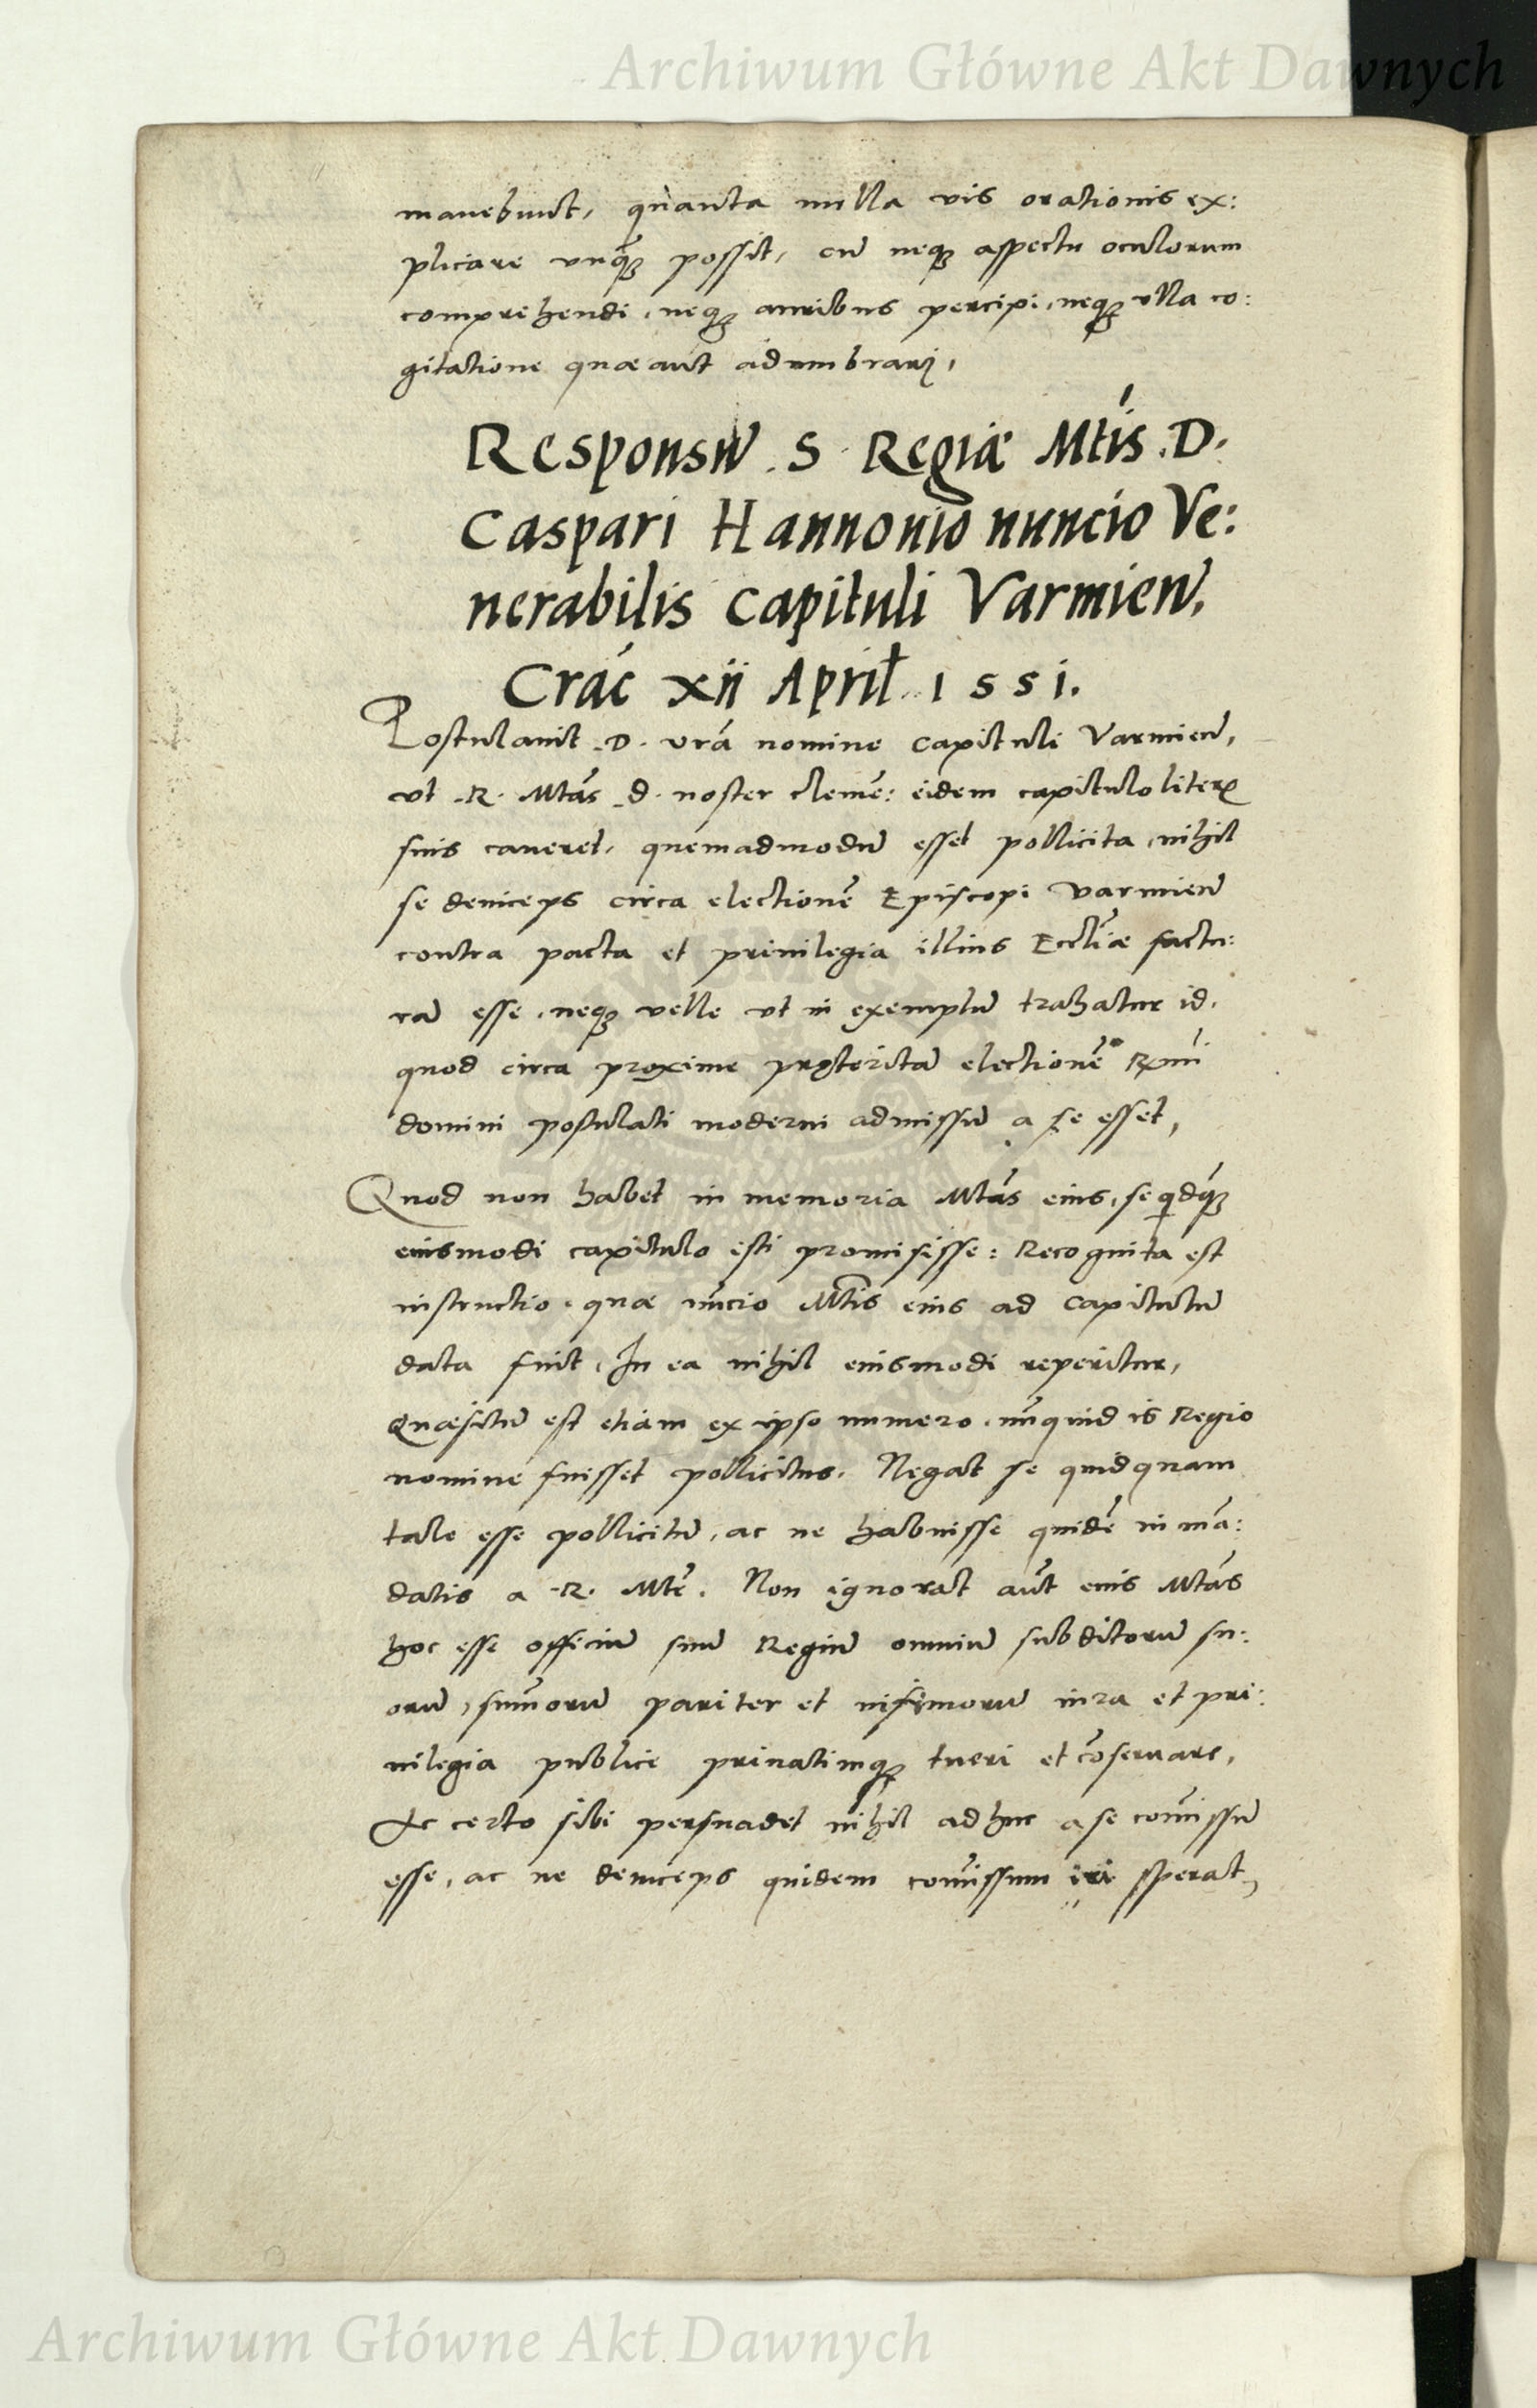 Archiwum Główne Akt Dawnych
manebunt, quanta nulla vis orationis ex:
plicare unq̃ꝫ possit, cũ neqꝫ aspectu oculorum
comprehendi, neqꝫ auribus percipi, neqꝫ ulla co:
gitatione quæant adumbrari,
Responsũ S Regiæ Mtis D.
Caspari Hannonio nuncio Ve:
nerabilis Capituli Varmień,
Crać xii April 1551.
Postulavit D. vrã nomine Capituli Varmień,
ut R. Mtas d. noster clemẽ: eidem capitulo literꝭ
suis caveret, quemadmodũ esset pollicita, nihil
se deinceps circa electionẽ Episcopi Varmień
contra pacta et privilegia illius Eccliæ factu:
rã esse, neqꝫ velle ut in exemplũ trahatur id,
quod circa proxime pręteritã electionẽ Rmi
domini postulati moderni admissũ a se esset,
Quod non habet in memoria Mtas eius, se qd̃q̃ꝫ
eiusmodi capitulo isti promisisse: Recognita est
instructio, quæ nũcio Mtis eius ad Capitulũ
data fuit, In ea nihil eiusmodi reperitur,
Quæsitũ est etiam ex ipso numero, nũquid is Regio
nomine fuisset pollicitus. Negat se quidquam
tale esse pollicitũ, ac ne habuisse quidẽ in mã:
datis a R. Mte. Non ignorat aũt eius Mtas
hoc esse officiũ suũ Regiũ omniũ subditorũ su:
orũ, sum̃orũ pariter et infimorũ iura et pri:
vilegia publice privatimqꝫ tueri et cõservare,
Ac certo sibi persuadet nihil adhuc a se com̃issũ
esse, ac ne deinceps quidem com̃issum iri sperat,
Archiwum Główne Akt Dawnych